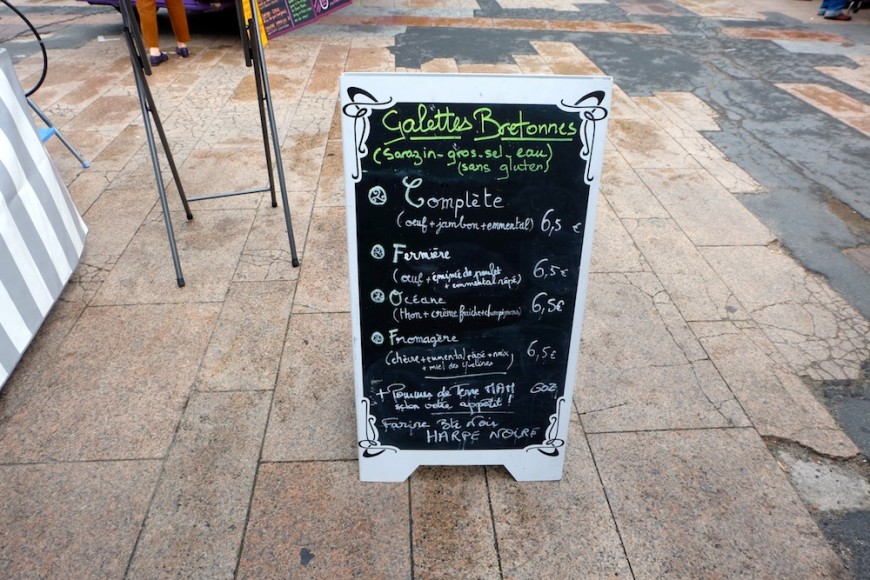 Galettes Bretonnes
(Sarazin - gros - sel - eau)
(sans gluten)
Complète
(oeuf + jambon + emmental) 6,5 €
Fermière
(oeuf + émincé de poulet 6,5€
+ emmental râpé)
Océane
(thon + crème fraîche + champignons) 6,5€
Fromagère
(chèvre + emmental râpé + noix 6,5€
+ miel des Yvelines)
+ Pommes de Terre MAM
selon votre appétit !
Farine Blé Noir
HARPE NOIRE